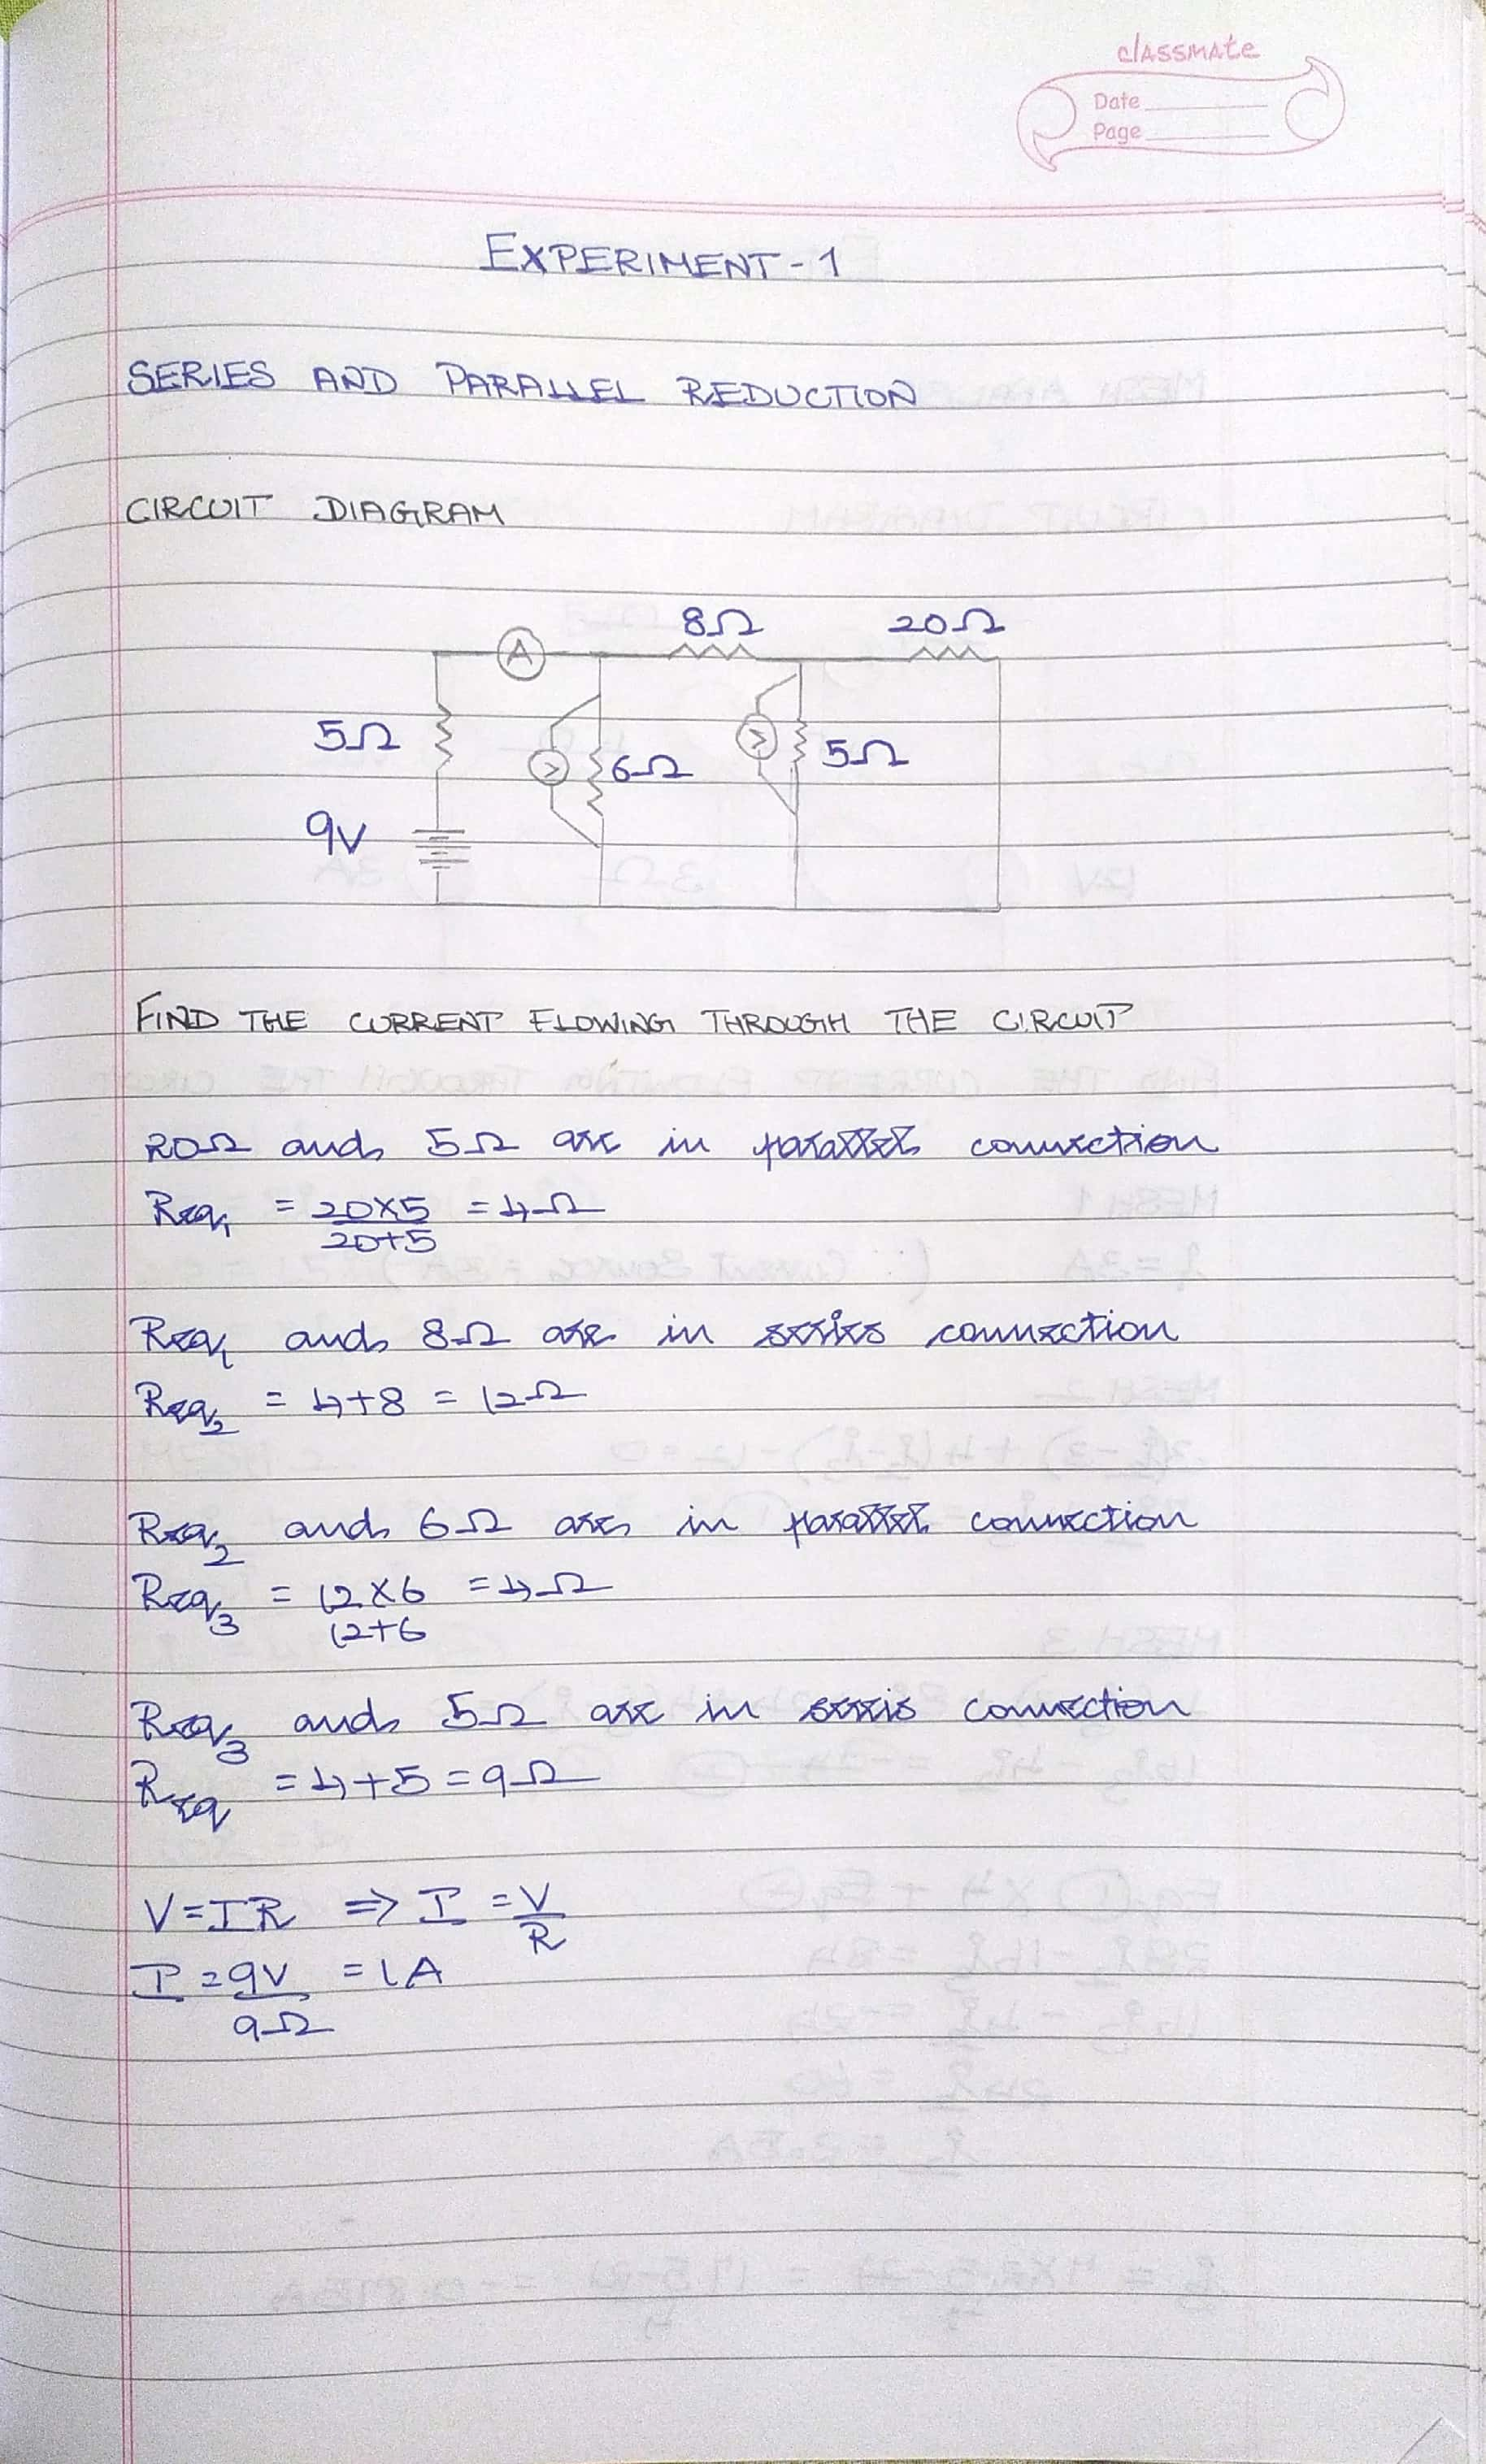 classmate
Date
Page
EXPERIMENT-1
SERIES AND PARALLEL REDUCTION
CIRCUIT DIAGRAM
8Ω 20Ω
A
5Ω V 6Ω V 5Ω
9V
FIND THE CURRENT FLOWING THROUGH THE CIRCUIT
20Ω and 5Ω are in parallel connection
Req₁ = 20×5 = 4Ω
20+5
Req₁ and 8Ω are in series connection
Req₂ = 4+8 = 12Ω
Req₂ and 6Ω are in parallel connection
Req₃ = 12×6 = 4Ω
12+6
Req₃ and 5Ω are in seris connection
Req = 4+5 = 9Ω
V=IR ⇒ I = V
R
I = 9V = 1A
9Ω